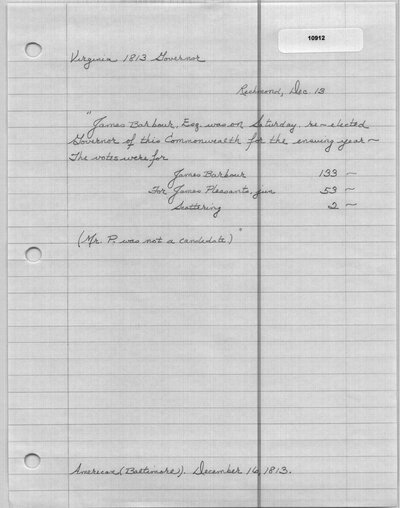 10912
Virginia 1813 Governor
Richmond, Dec. 13
"James Barbour, Esq. was on Saturday re-elected
Governor of this Commonwealth for the ensuing year ~
The votes were for
James Barbour 133 ~
For James Pleasants, jun 53 ~
Scattering 2 ~
(Mr. P. was not a candidate.)"
American (Baltimore). December 16, 1813.